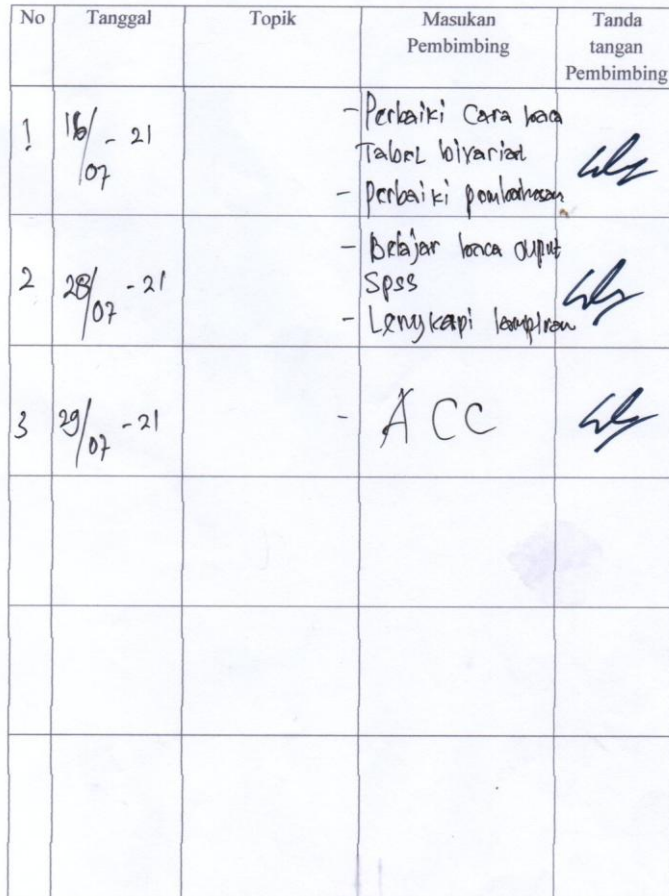 No Tanggal Topik Masukan Pembimbing Tanda tangan Pembimbing
1 16/07 - 21 - Perbaiki Cara baca
Tabel bivariat
- Perbaiki pembahasan
2 28/07 - 21 - Belajar baca ouput
Spss
- Lengkapi lampiran
3 29/07 - 21 - ACC